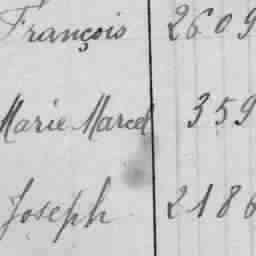 François 2609
Marie Marcel 359
Joseph 2186